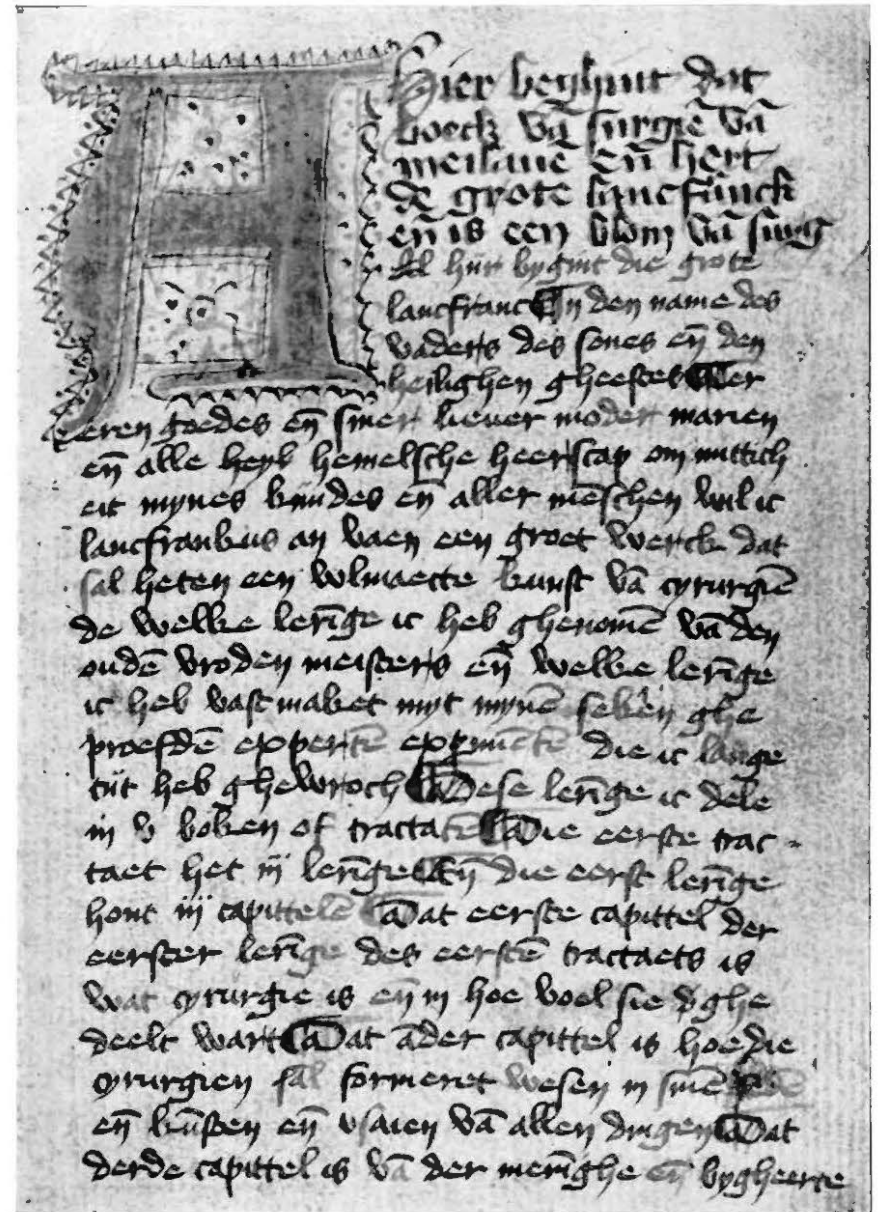 A
Hier beghint dat
boeck vā surgiē vā
meilane eñ hert
de grote lancfranck
eñ is een blom vā surg
Al hiir bygint die grote
lancfranc In den name des
vaders des sones eñ den
heilighen gheestes Ter
eren goedes eñ siner liever moder marien
eñ alle heyl hemelsche heerscap om nuttich
eit mynes kindes eñ aller mēschen wil ic
lancfrankus an vaen een groet werck dat
sal heten een volmaecte kunst vā cyrurgiē
de welke lerīge ic heb ghenomē vā den
oudē vroden meisters eñ welke lerīge
ic heb vast maket myt mynē sekeē ghe
proefdē expertē expimētē die ic lange
tiit heb ghewroch Dese lerīge ic dele
in v boken of tractatē Die eerste trac
taet het iij lerīge Eñ die eerst lerīge
hout iij capittelē Dat eerste capittel der
eerster lerīge des eerstē tractaets is
wat cyrurgie is eñ in hoe voel sie ghe
deelt wart Dat āder capittel is hoe die
cyrurgien sal formeret wesen in sinē
eñ kūsten eñ vsaien vā allen dingen Dat
derde capittel is vā der meringhe eñ bygheerte